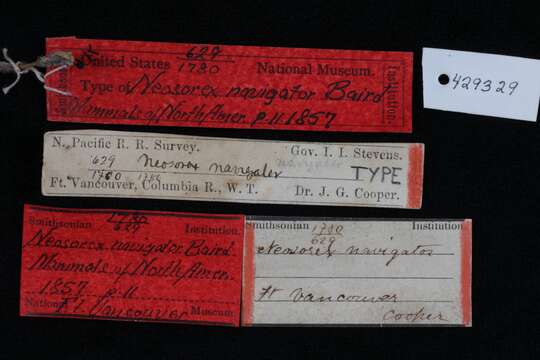 629
United States 1780 National Museum.
Type of Neosorex navigator Baird
Mammals of North Amer. p. 11. 1857
Institution.
429329
N. Pacific R. R. Survey. Gov. I. I. Stevens.
629 Neosorex navigator navigator TYPE
1780 1780
Ft. Vancouver, Columbia R., W. T. Dr. J. G. Cooper.
1780
Smithsonian 629 Institution.
Neosorex navigator Baird
Mammals of North Amer.
1857 p. 11
National Ft Vancouver Museum
Smithsonian 1780 Institution
629
Neosorex navigator
Ft Vancouver
Cooper